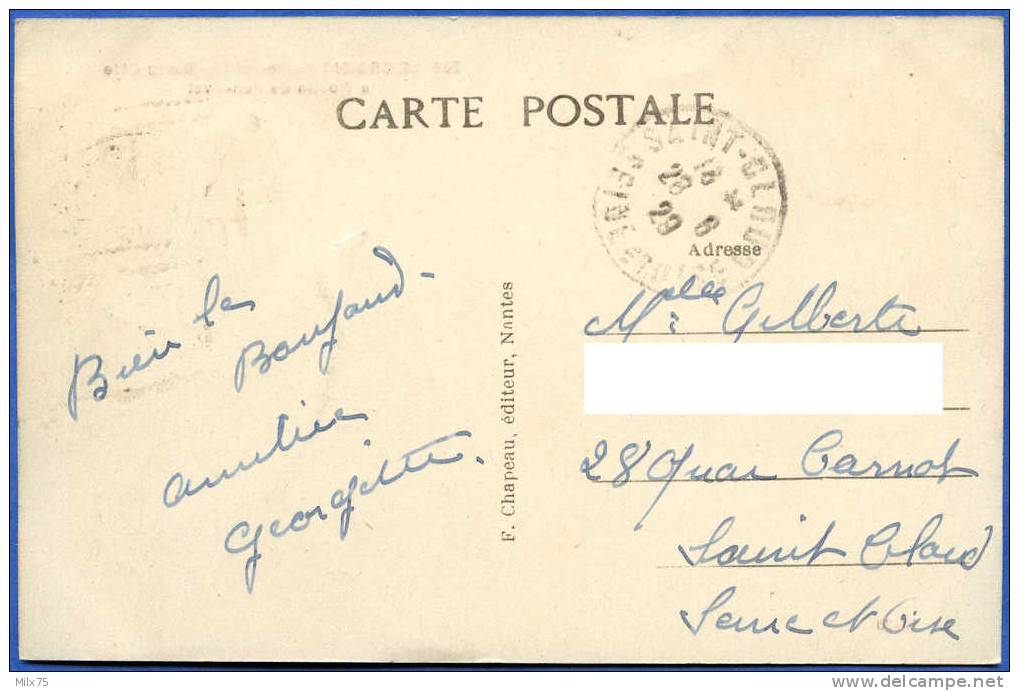 CARTE POSTALE
SAINT-CLOUD
18
28 6
29
Adresse
Bien le
Bonjour
amitiés
Georgette.
F. Chapeau, éditeur, Nantes
Melle Gilberte
28 quai Carnot
Saint Cloud
Seine et Oise
Milx75
delcampe.net